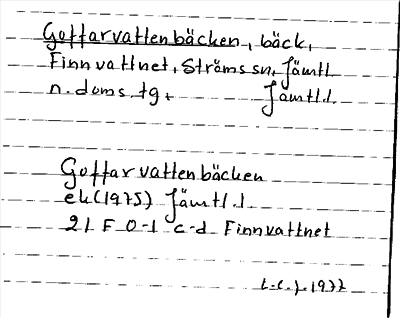 Goffarvattenbäcken, bäck,
Finnvattnet, Ströms sn, Jämtl.
n. doms. tg. Jämtl.l.
Goffarvattenbäcken
ek (1975) Jämtl.l
21 F 0-1 c-d Finnvattnet
1977